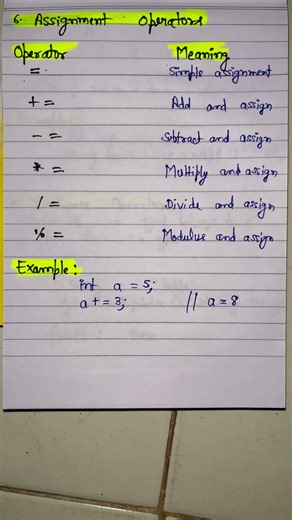 6. Assignment Operators
Operator Meaning
= Simple assignment
+ = Add and assign
- = Subtract and assign
* = Multiply and assign
/ = Divide and assign
% = Modulus and assign
Example:
int a = 5;
a += 3; // a = 8